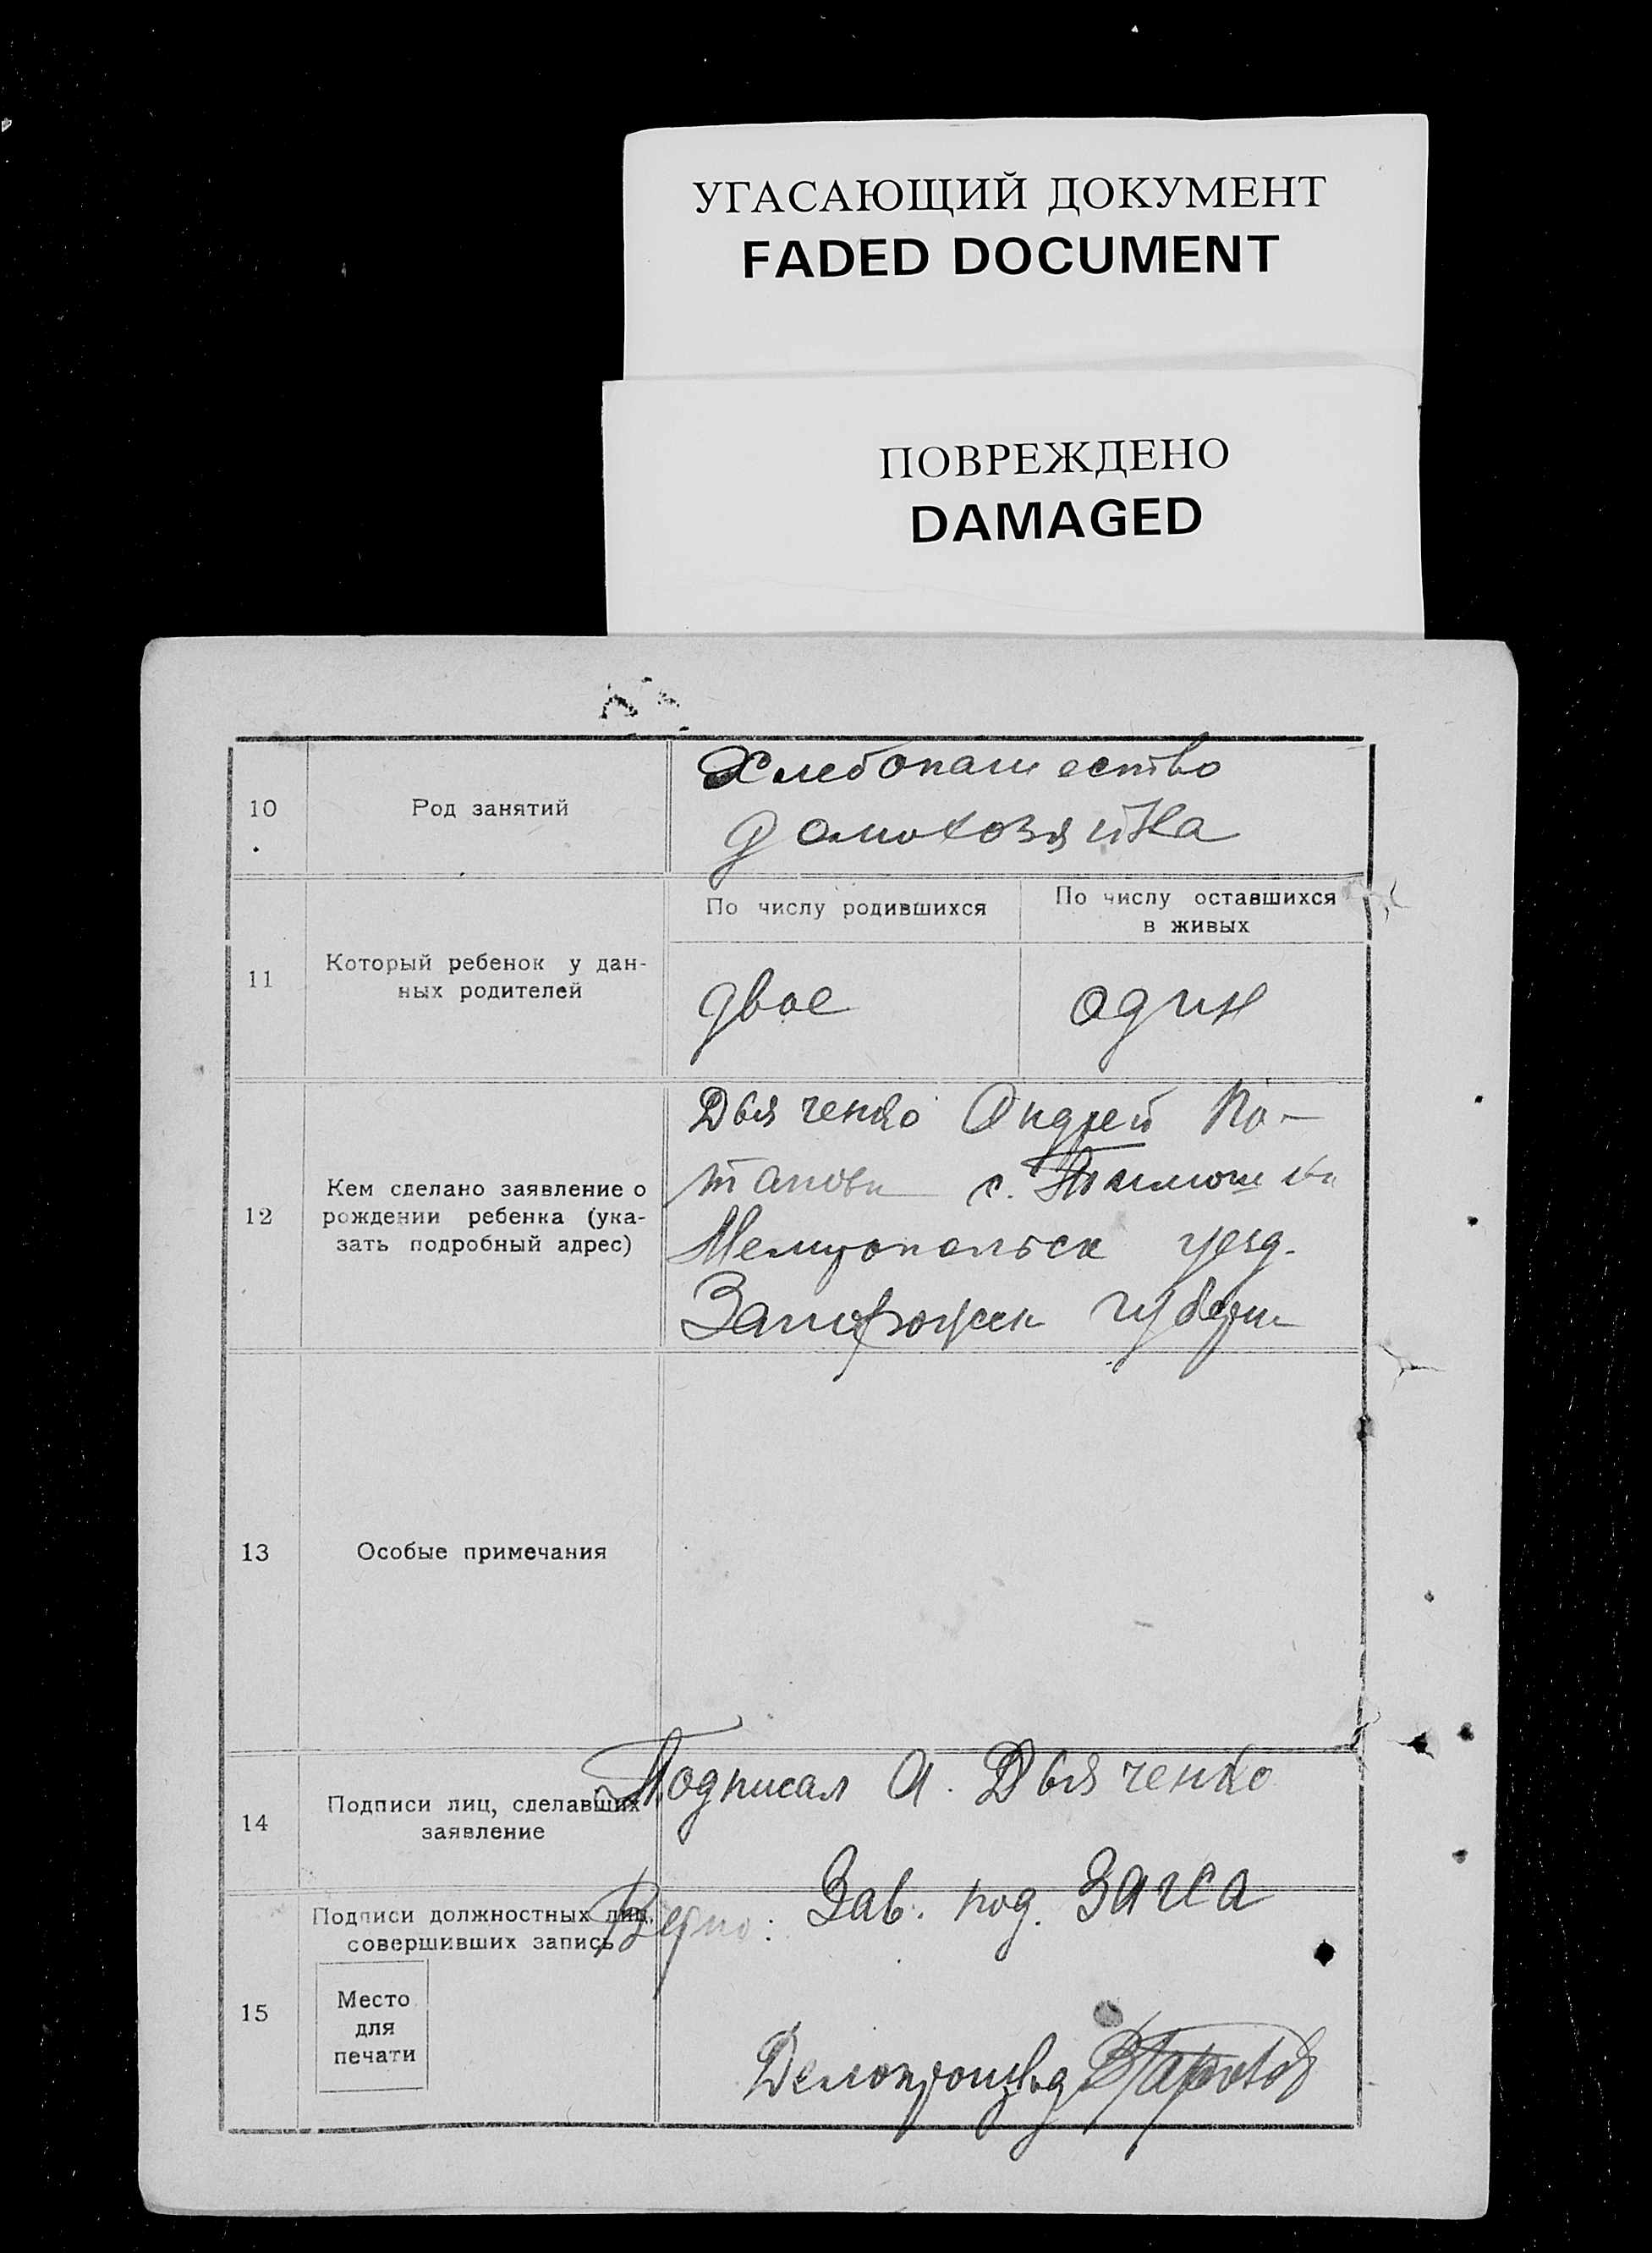 УГАСАЮЩИЙ ДОКУМЕНТ
FADED DOCUMENT
ПОВРЕЖДЕНО
DAMAGED
10
Род занятий
Хлебопашество
домохозяйка
11
Который ребенок у дан-
ных родителей
По числу родившихся
двое
По числу оставшихся
в живых
один
12
Кем сделано заявление о
рождении ребенка (ука-
зать подробный адрес)
Дьяченко Андрей По-
с.
Мелитопольск уезд.
губерн
13
Особые примечания
14
Подписи лиц, сделавших
заявление
Подписал А. Дьяченко
15
Подписи должностных лиц,
совершивших запись
Место
для
печати
Верно: Зав. под. Загса
Делопроизвод